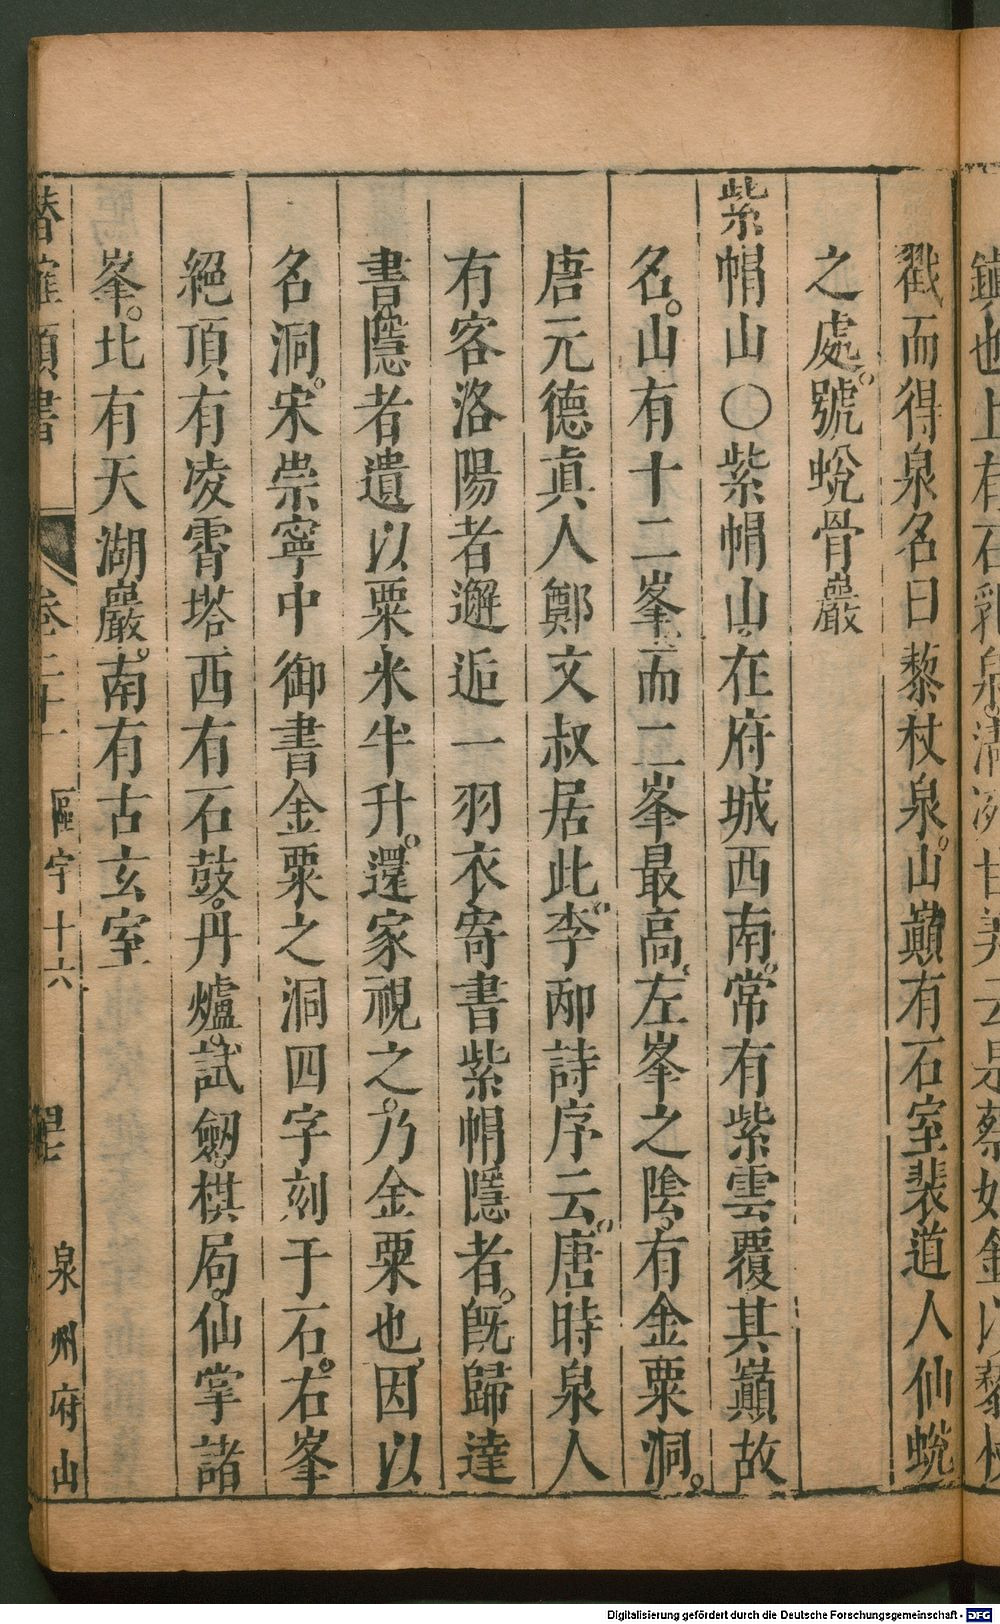 戳而得泉名曰藜杖泉。山巔有石室裴道人仙蛻
之處。號蛻骨巖
紫帽山○紫帽山。在府城西南。常有紫雲覆其巔故
名。山有十二峯。而二峯最高。左峯之陰。有金粟洞。
唐元德眞人鄭文叔居此。李邴詩序云。唐時泉人
有客洛陽者邂逅一羽衣寄書紫帽隱者。旣歸達
書。隱者遺以粟米半升。還家視之。乃金粟也。因以
名洞。宋崇寧中御書金粟之洞四字刻于石。右峯
絕頂有凌霄塔西有石鼓。丹爐。試劒。棋局。仙掌諸
峯。北有天湖巖。南有古玄室
類書 卷二十一 區宇十六 泉州府山
Digitalisierung gefördert durch die Deutsche Forschungsgemeinschaft - DFG